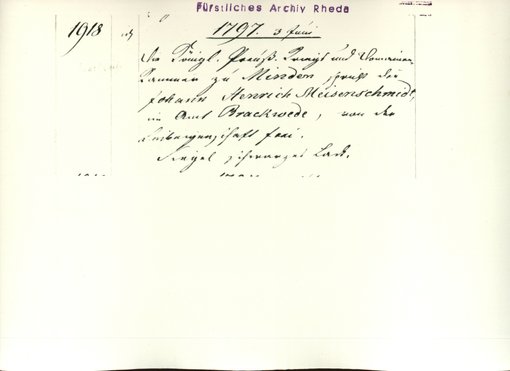 Fürstliches Archiv Rheda
1918
1797. 3 Juni
Die Königl. Preuß. Kriegs und Domainen
Kammer zu Minden spricht den
Johann Henrich Meisenschmidt,
im Amt Brackwede, von der
Leibeigenschaft frei.
Siegel schwarzes Lack.